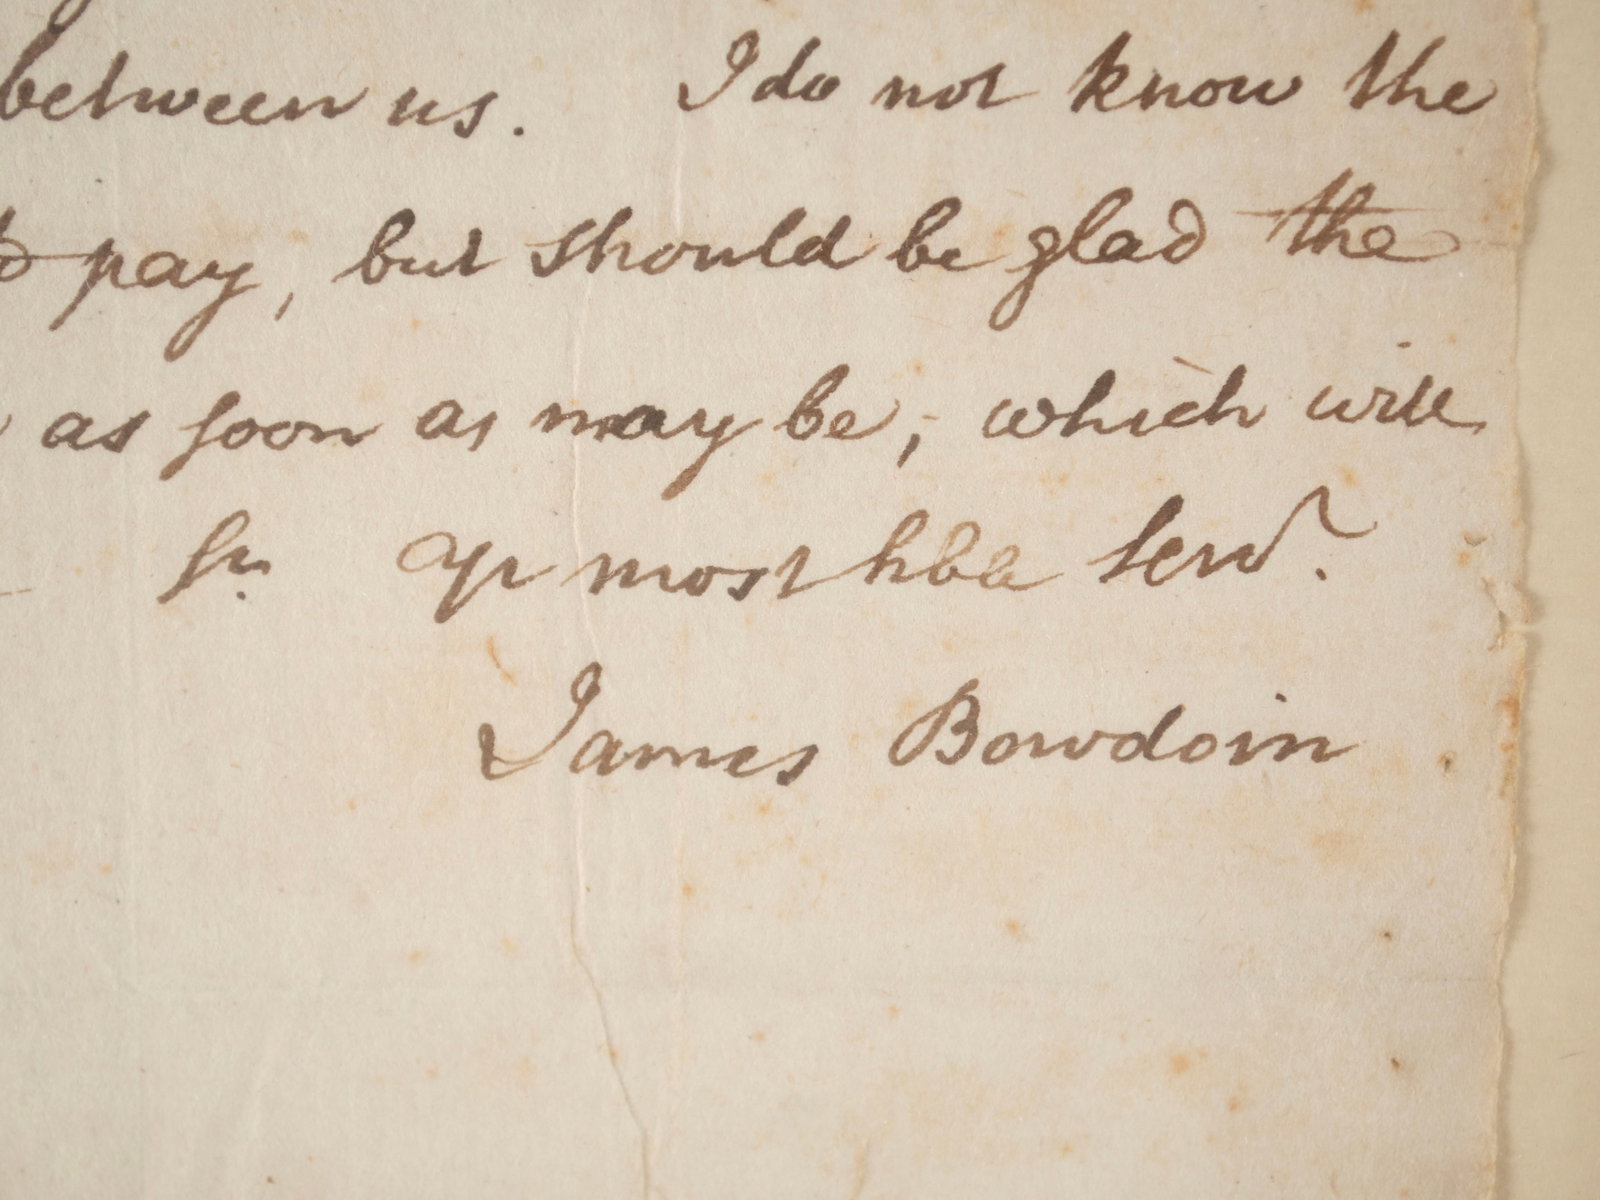 between us. I do not know the
pay, but should be glad the
as soon as may be; which will
Sr. Yr most hble Servt.
James Bowdoin